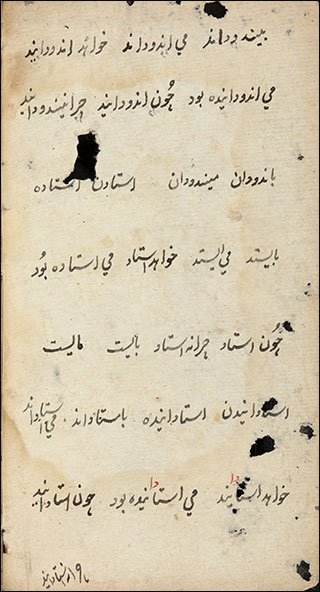 بیندوداند می اندوداند خواهد اندودانید
می اندودانیده بود چُون اندودانید چرا نیندوداند
باندودان میندودان استادن استاده
بایستد می ایستد خواهد استاد می استاده بُود
چُون استاد چرانه استاد بایست مایست
استادانیدن استادانیده باستاداند می استاداند
خواهد استادانید می استادانیده بود چون استادانید